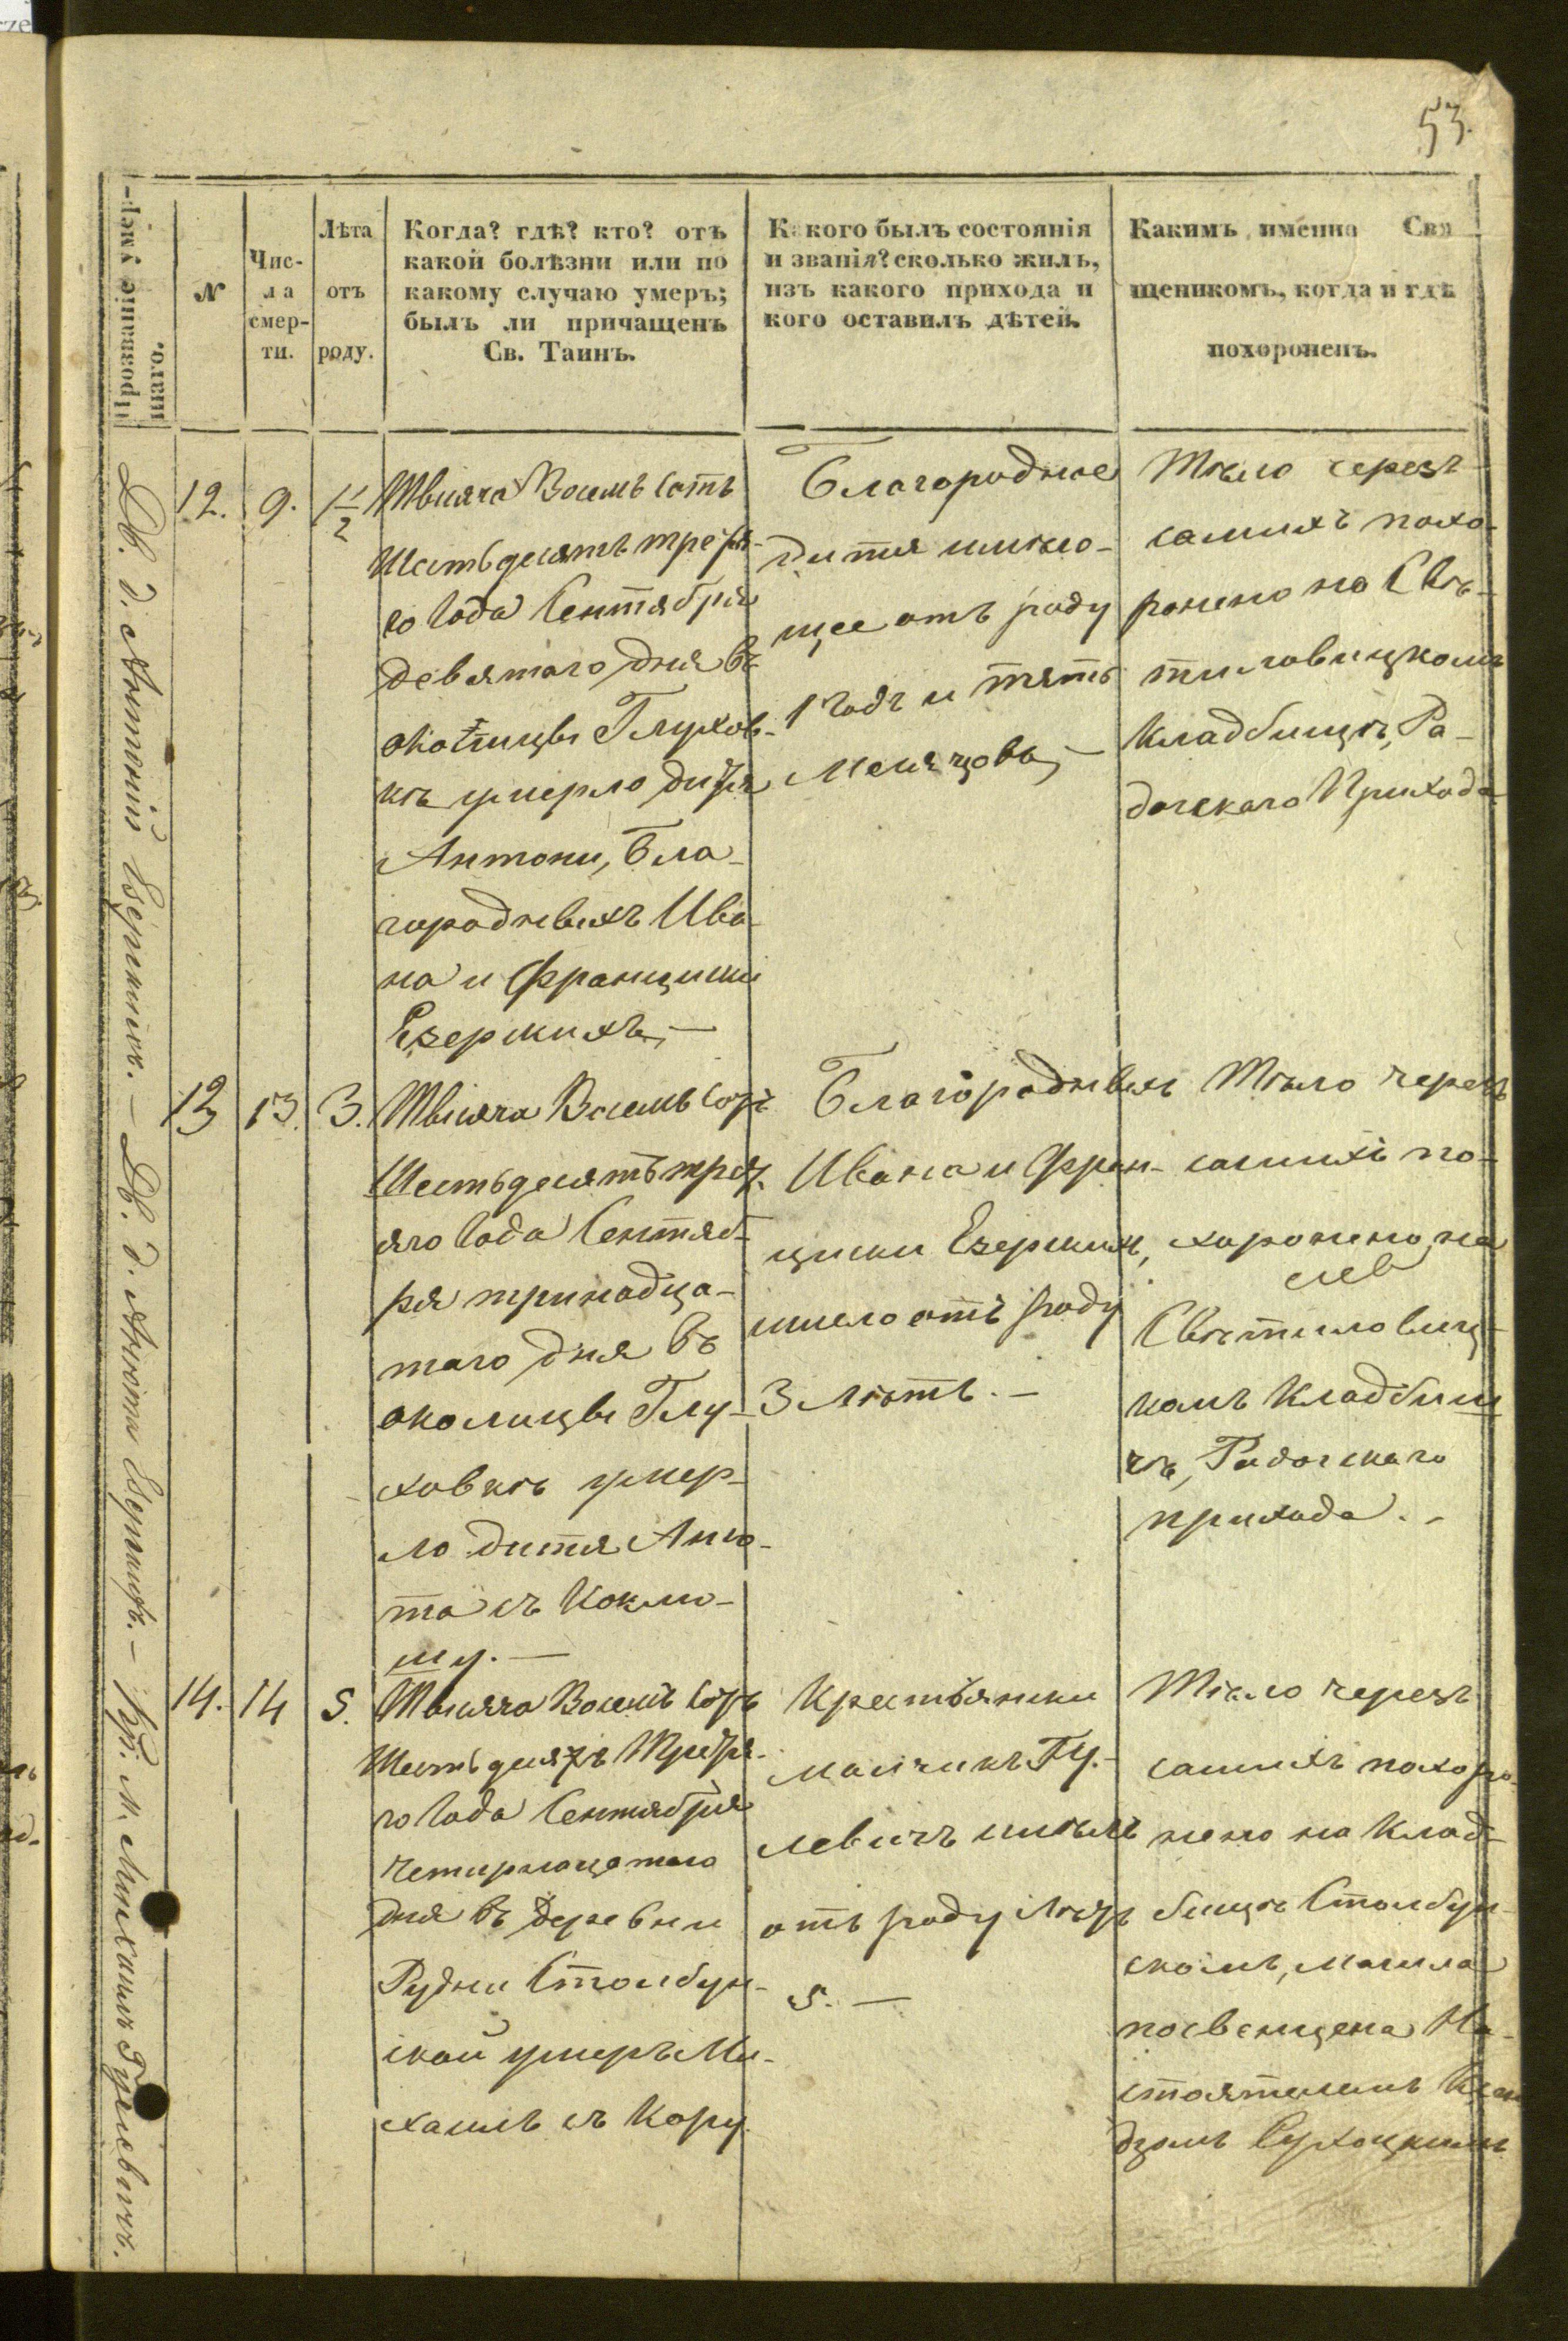 53.
Прозваніе умер-
шаго.
N
Чис-
ла
смер-
ти.
Лѣта
отъ
роду.
Когда? гдѣ? кто? отъ
какой болѣзни или по
какому случаю умеръ;
былъ ли причащенъ
Св. Таинъ.
Какого былъ состоянія
и званія? сколько жилъ,
изъ какого прихода и
кого оставилъ дѣтей.
Какимъ именно Свя
щеникомъ, когда и гдѣ
похороненъ.
Дв. д. Антоній Езерскихъ. — Дв. д. Анюта Езерскихъ. — Кр. м. Михаилъ Гулевичъ.
12.
9.
1 1/2
Тысяча Восемь сотъ
Шестьдесятъ третя-
го Года Сентября
девятаго дня въ
околицы Глухов-
кѣ умерло дитя
Антони, Бла-
городныхъ Ива-
на и Францишки
Езерскихъ, —
Благородное
дитя имѣю-
щее отъ роду
1 годъ и пять
месяцовъ, —
Тѣло черезъ
самихъ похо-
ронено на Свѣ-
тиловицкомъ
Кладбищѣ, Ра-
догскаго Прихода
13
13.
3.
Тысяча Восемь сотъ
Шестьдесятъ трет.
яго Года Сентяб-
ря тринадца-
таго дня въ
околицы Глу-
ховкѣ умер-
ло дитя Аню-
та съ Коклю-
шу. —
Благородныхъ
Ивана и Фран-
циски Езерскихъ,
имело отъ роду
3 Лѣтъ. —
Тѣло черезъ
самихъ по-
хоронено, на
Свѣтиловиц-
комъ Кладбищ
ѣ, Радогскаго
прихода. -
14.
14
5.
Тысяча Восемь сотъ
Шестьдесятъ Третя-
го Года Сентября
Четырнацатаго
дня въ деревни
Рудни Столбун-
ской умеръ Ми-
хаилъ съ Кору
Крестьянки
мальчикъ Гу-
левичъ имѣлъ
отъ роду Лѣтъ
5. —
Тѣло черезъ
самихъ похоро-
нено на Клад-
бищѣ Столбун-
скомъ, могила
посвенцена На-
стоятелемъ Ксен
дзомъ